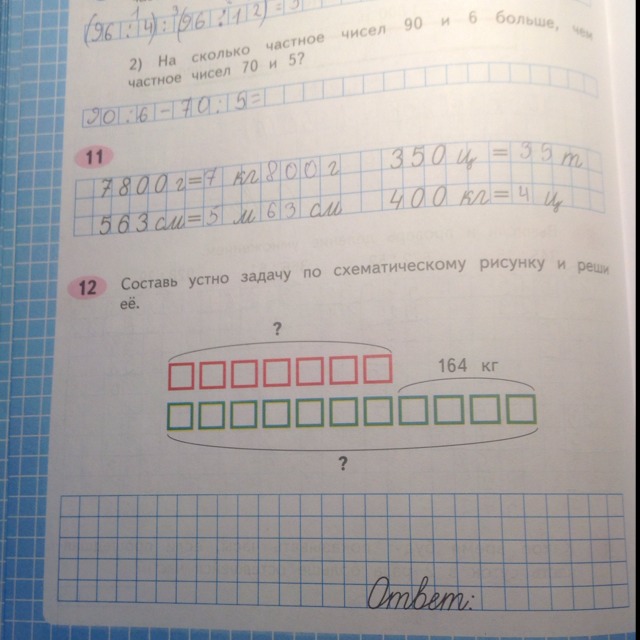 (96 : 4) : (96 : 12) = 3
2) На сколько частное чисел 90 и 6 больше, чем
частное чисел 70 и 5?
90 : 6 - 70 : 5 =
11
7800 г = 7 кг 800 г 350 ц = 35 т
563 см = 5 м 63 см 400 кг = 4 ц
12 Составь устно задачу по схематическому рисунку и реши
её.
?
164 кг
?
Ответ: